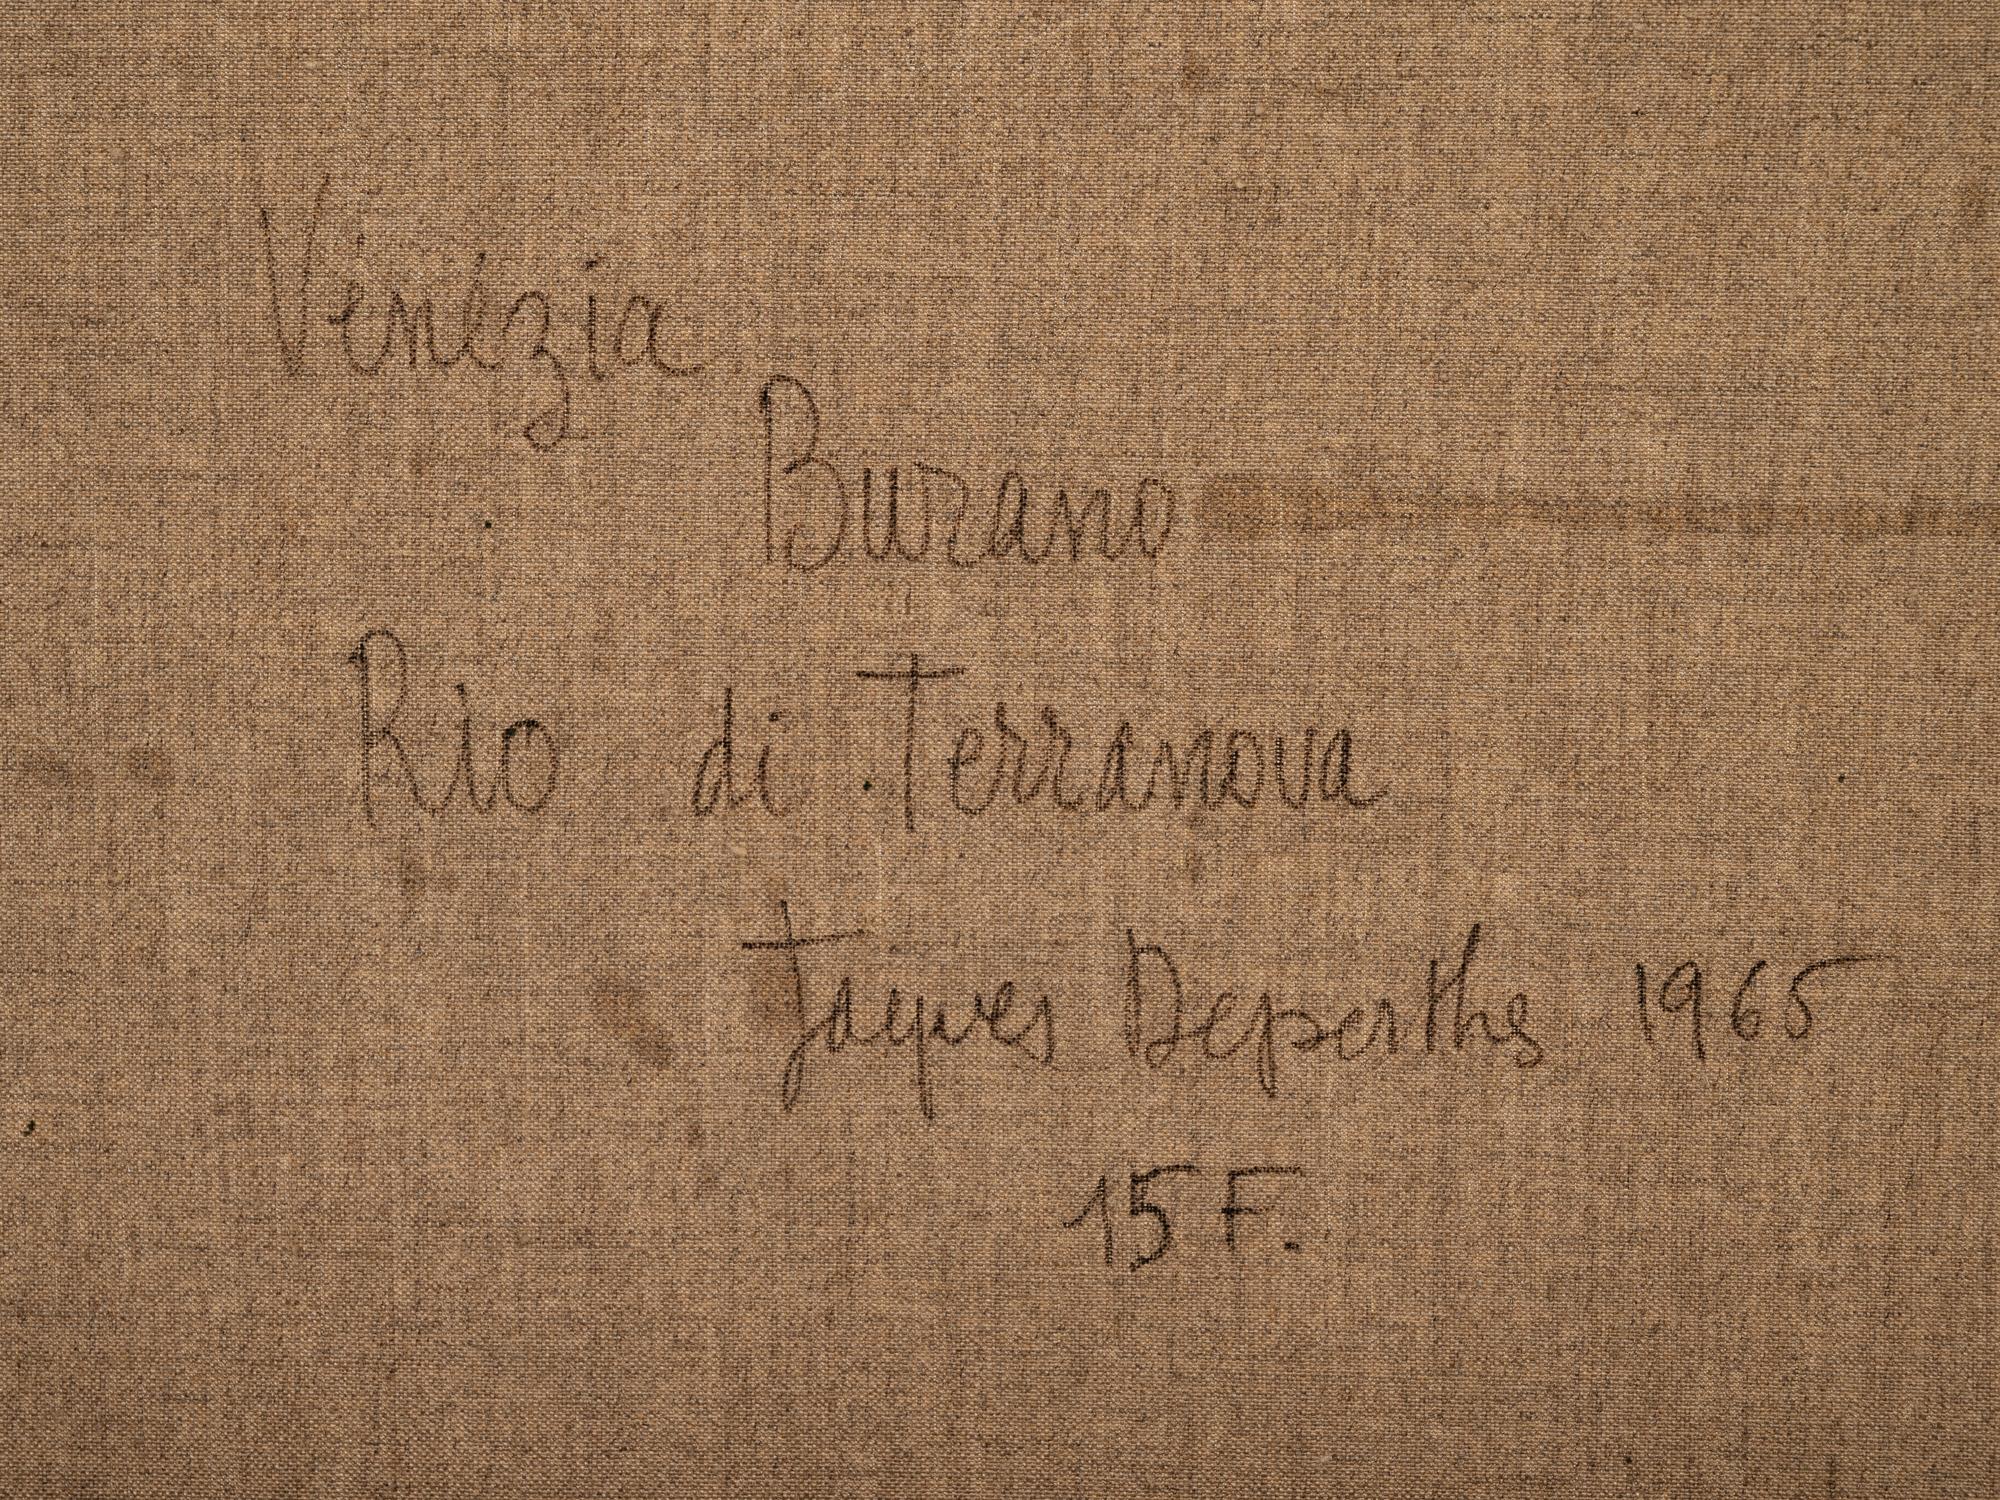 Venezia
Burano
Rio di Terranova
Jaques Deperthes 1965
15 F.